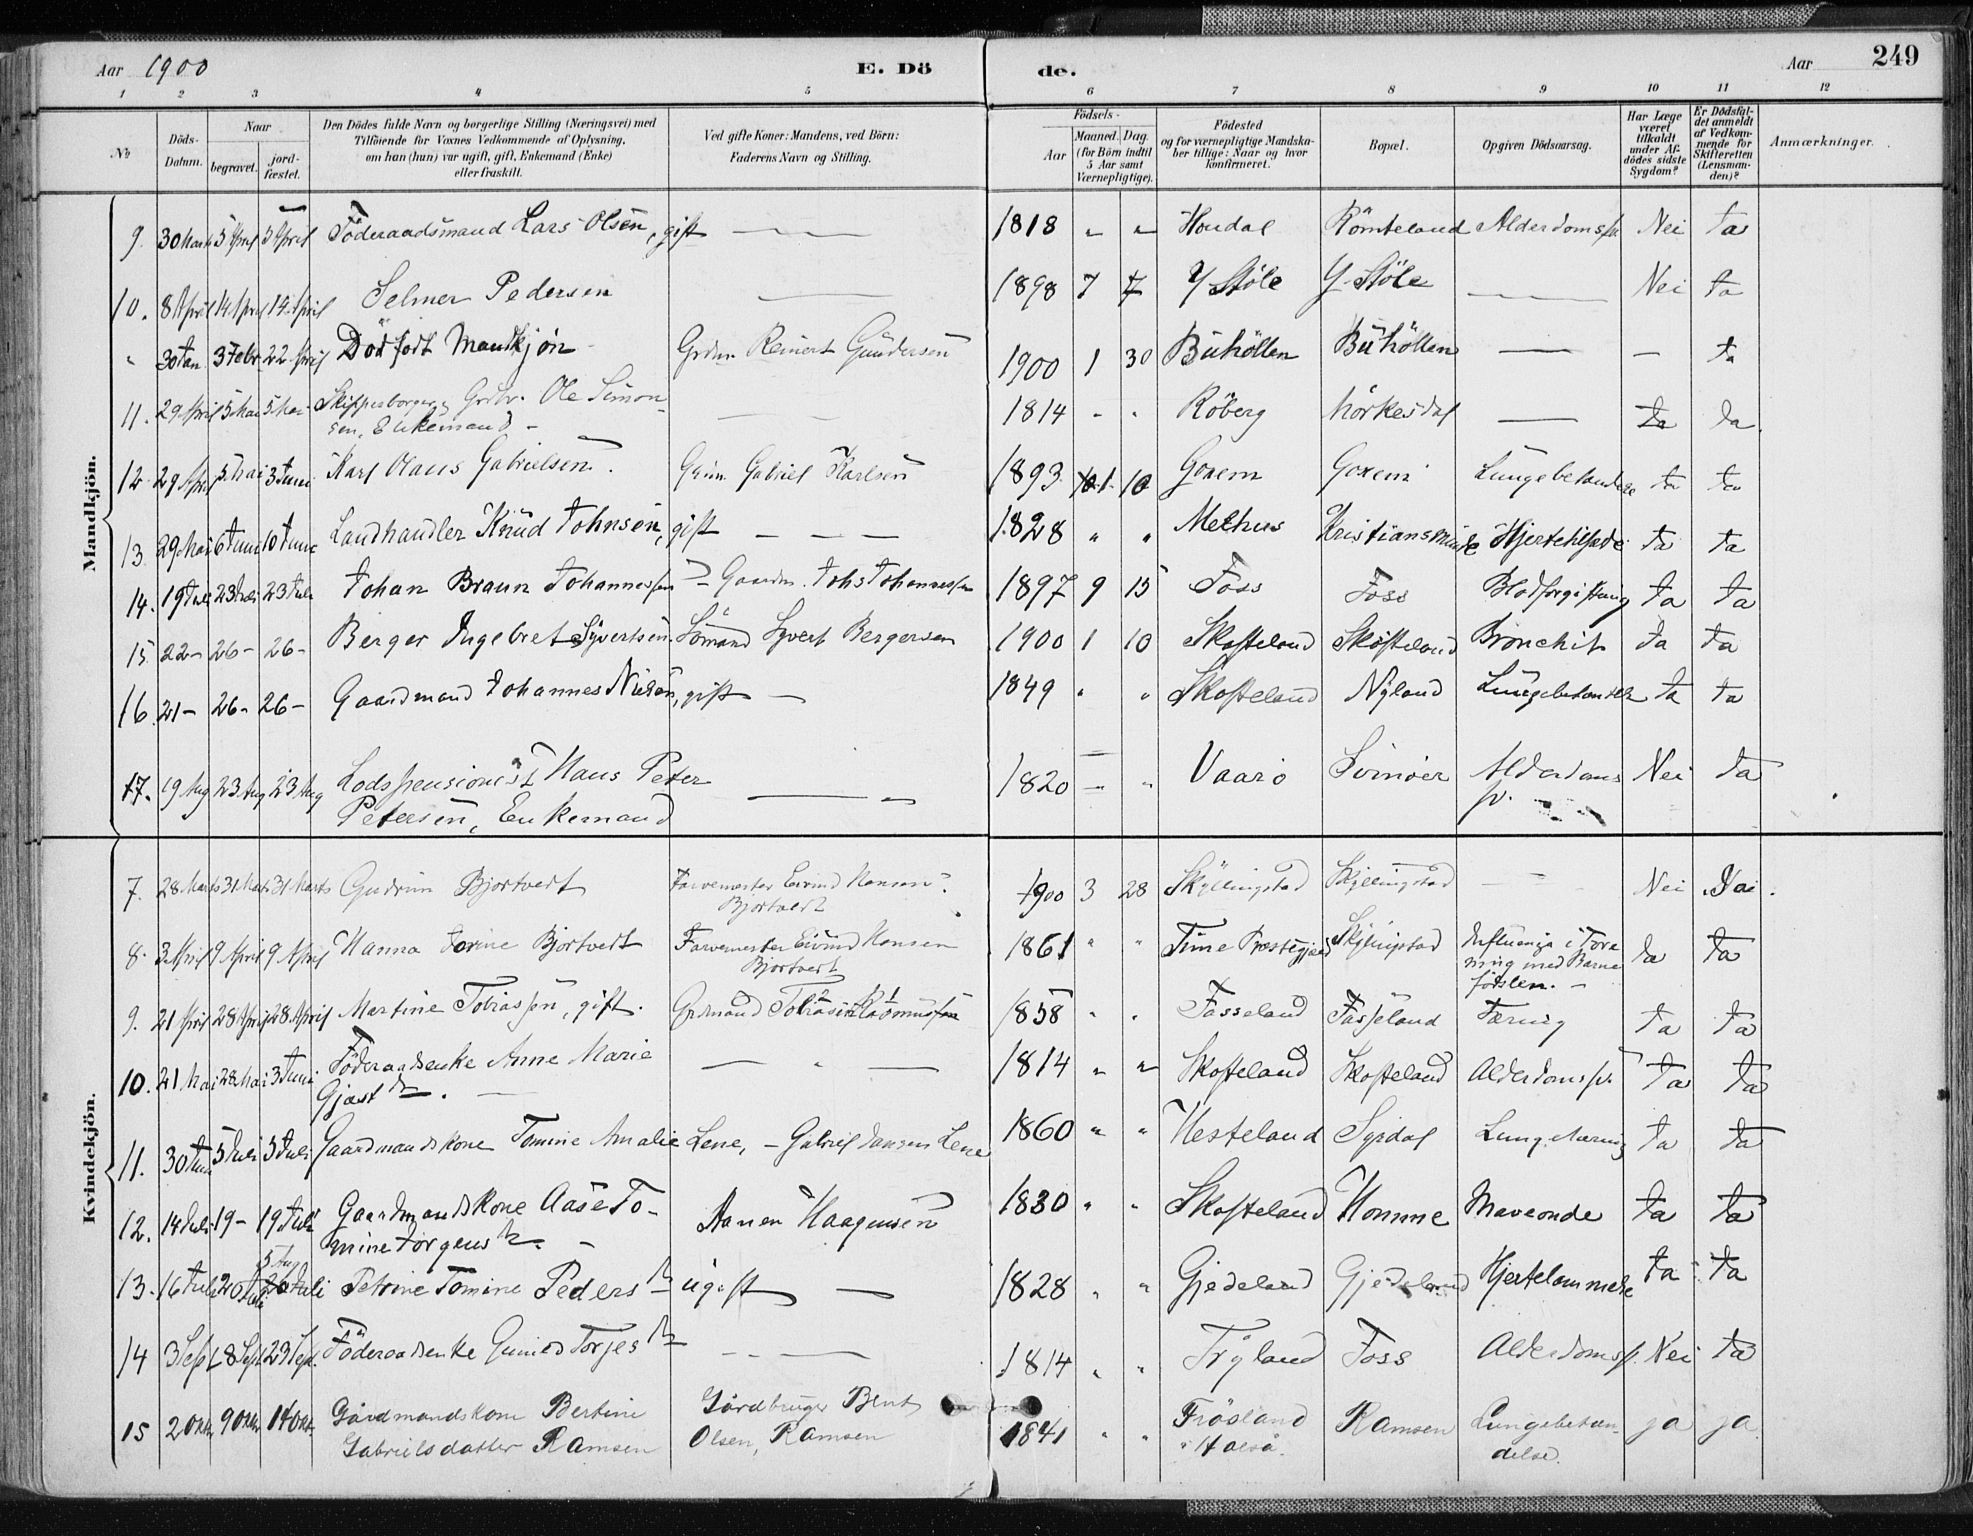 Aar 1900 E. Dö de. Aar 249
1 2 3 4 5 6 7 8 9 10 11 12
№ Döds-Datum. Naar begravet. jord-fæstet. Den Dödes fulde Navn og borgerlige Stilling (Næringsvei) med Tilföiende for Voxnes Vedkommende af Oplysning, om han (hun) var ugift, gift, Enkemand (Enke) eller fraskilt. Ved gifte Koner: Mandens, ved Börn: Faderens Navn og Stilling. Födsels- Aar Maaned. Dag. (for Börn indtil 5 Aar samt Værnepligtige). Födested og for værnepligtige Mandskaber tillige: Naar og hvor konfirmeret. Bopæl. Opgiven Dödsaarsag. Har Læge været tilkaldt under Afdödes sidste Sygdom? Er Dödsfaldet anmeldt af Vedkommende for Skifteretten (Lensmanden)? Anmærkninger.
Mandkjön.
9. 30 Marts 5 April 5 April Föderaadsmand Lars Olsen, gift — — 1818 " " Homdal Römteland Alderdomssv. Nei Ja
10. 8 April 14 April 14 April Selmer Pedersen — 1898 7 7 Y Stöle Y. Stöle — Nei Ja
" 30 Jan 3 Febr 22 April Dödfödt Mandkjön Grdm. Reinert Gundersen 1900 1 30 Buhöllen Buhöllen — — Ja
11. 29 April 5 Mai 5 Mai Skipperborger, Grdbr. Ole Simon-
sen, Enkemand — — 1814 " " Röberg Mörkesdal — Ja Ja.
12 29 April 5 Mai 3 Juni Karl Olaus Gabrielsen. Grdm. Gabriel Karlsen 1893 1. 10 Goxem Goxem Lungebetændelse Ja Ja
13 29 Mai 6 Juni 10 Juni Landhandler Knud Johnsen, gift — — — 1828 " " Melhus Kristiansminde Hjertetilfælde Ja Ja
14. 19 Juli 23 Juli 23 Juli Johan Braun Johannessen — Gaardm. Johs Johannessen 1897 9 15 Foss Foss Blodforgiftning Ja Ja
15 22 — 26 — 26 — Berger Ingebret Syvertsen Sömand Syvert Bergersen 1900 1 10 Skofteland Skofteland Bronchit Ja Ja
16. 21 — 26 — 26 — Gaardmand Johannes Nilsen, gift — 1849 " " Skofteland Nyland Lungebetændelse Ja Ja
17. 19 Aug 23 Aug 23 Aug Lodspensionist Hans Peter
Petersen, Enkemand — " 1820 — " Vaarö Svinöer Alderdoms
sv. Nei Ja
Kvindekjön.
7. 28 Marts 31 Marts 31 Marts Gudrun Bjortvedt Farvemester Eivind Hansen
Bjortvedt 1900 3 28 Skyllingstad Skyllingstad — Nei Nei.
8. 3 April 9 April 9 April Hanna Jorine Bjortvedt Farvemester Eivind Hansen
Bjortvedt 1861 " " Time Præstegjeld Skyllingstad Influenza i Fore-
ning med Barne
födslen. — Ja Ja
9. 21 April 28 April 28 April Martine Tobiassen, gift. Grdmand Tobias Rasmussen 1858 " " Fasseland Fasseland Tæring Ja Ja
10. 21 Mai 28 Mai 3 Juni Föderaadsenke Anne Marie
Gjastdtr. — — " — 1814 " " Skofteland Skofteland Alderdomssv. Ja Ja
11. 30 Juni 5 Juli 5 Juli Gaardmandskone Tomine Amalie Lene, — Gabriel Jansen Lene 1860 " " Hesteland Syrdal Lungetæring Ja Ja
12. 14 Juli 19 — 19 Juli Gaardmandskone Aase To-
mine Jörgensdtr. — Aanen Haagensen 1830 " " Skofteland Homme Mavesonde Ja Ja
5 Aug
13. 16 Juli 20 Juli 26 Juli Petrine Tomine Pedersdtr ugift — 1828 " " Gjedeland Gjedeland Hjertelammelse Ja Ja
14 3 Sept 8 Sept 23 Sept. Föderaadsenke Gunild Torjesdtr — — 1814 " " Tryland Foss Alderdomssv. Nei Ja
15 2 Okt 9 Okt 14 Okt Gårdmandskone Bertine
Gabrielsdatter Ramsen Gårdbruger Bent
Olsen, Ramsen 1841 " " Frösland
i Halså. Ramsen Lungebetæn-
delse. ja ja